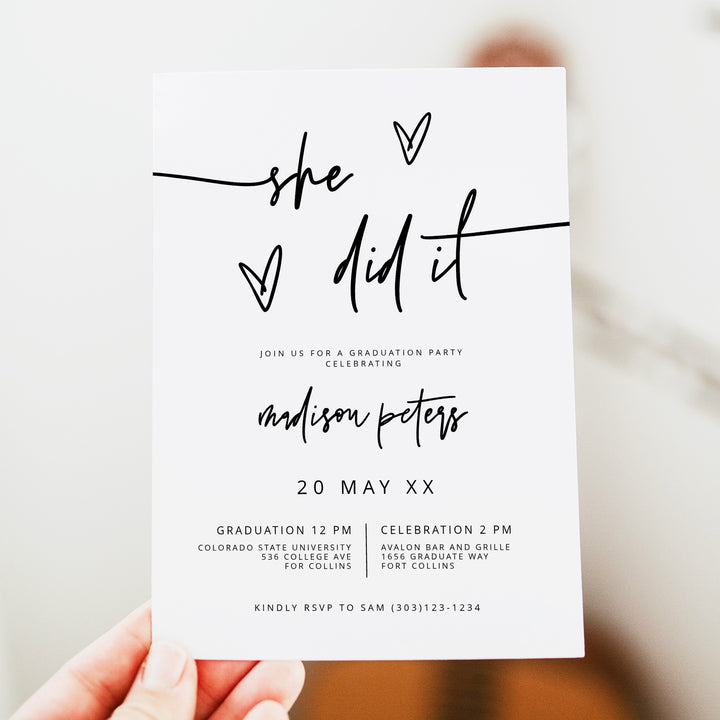 she
did it
JOIN US FOR A GRADUATION PARTY
CELEBRATING
madison peters
20 MAY XX
GRADUATION 12 PM
COLORADO STATE UNIVERSITY
536 COLLEGE AVE
FOR COLLINS
CELEBRATION 2 PM
AVALON BAR AND GRILLE
1656 GRADUATE WAY
FORT COLLINS
KINDLY RSVP TO SAM (303)123-1234